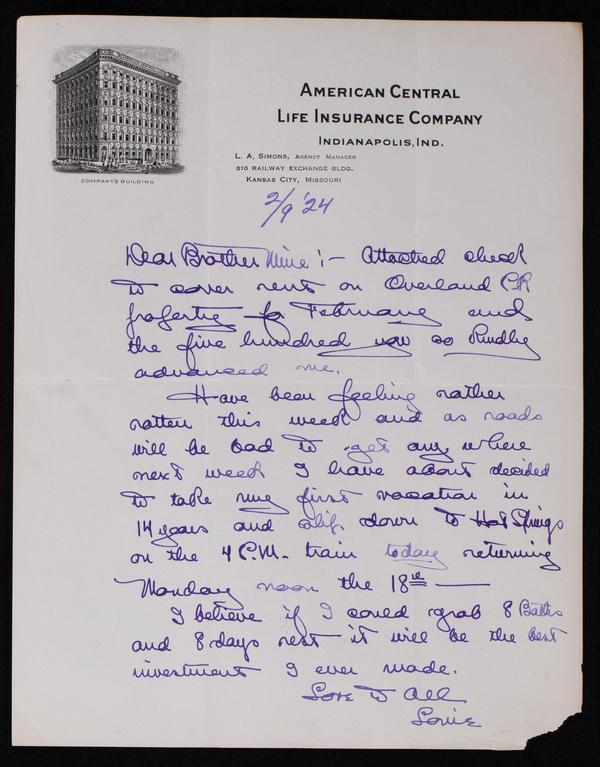 COMPANY'S BUILDING
AMERICAN CENTRAL
LIFE INSURANCE COMPANY
INDIANAPOLIS, IND.
L. A. SIMONS, AGENCY MANAGER
210 RAILWAY EXCHANGE BLDG.
KANSAS CITY, MISSOURI
2/9 '24
Dear Brother Mine :- Attached check
to cover rent on Overland PK
property for February and
the five hundred you so kindly
advanced me.
Have been feeling rather
rotten this week and as roads
will be bad to get any where
next week I have about decided
to take my first vacation in
14 years and slip down to Hot Springs
on the 4 P.M. train today returning
Monday noon the 18th
I believe if I could grab 8 Baths
and 8 days rest it will be the best
investment I ever made.
Love to All
Louie